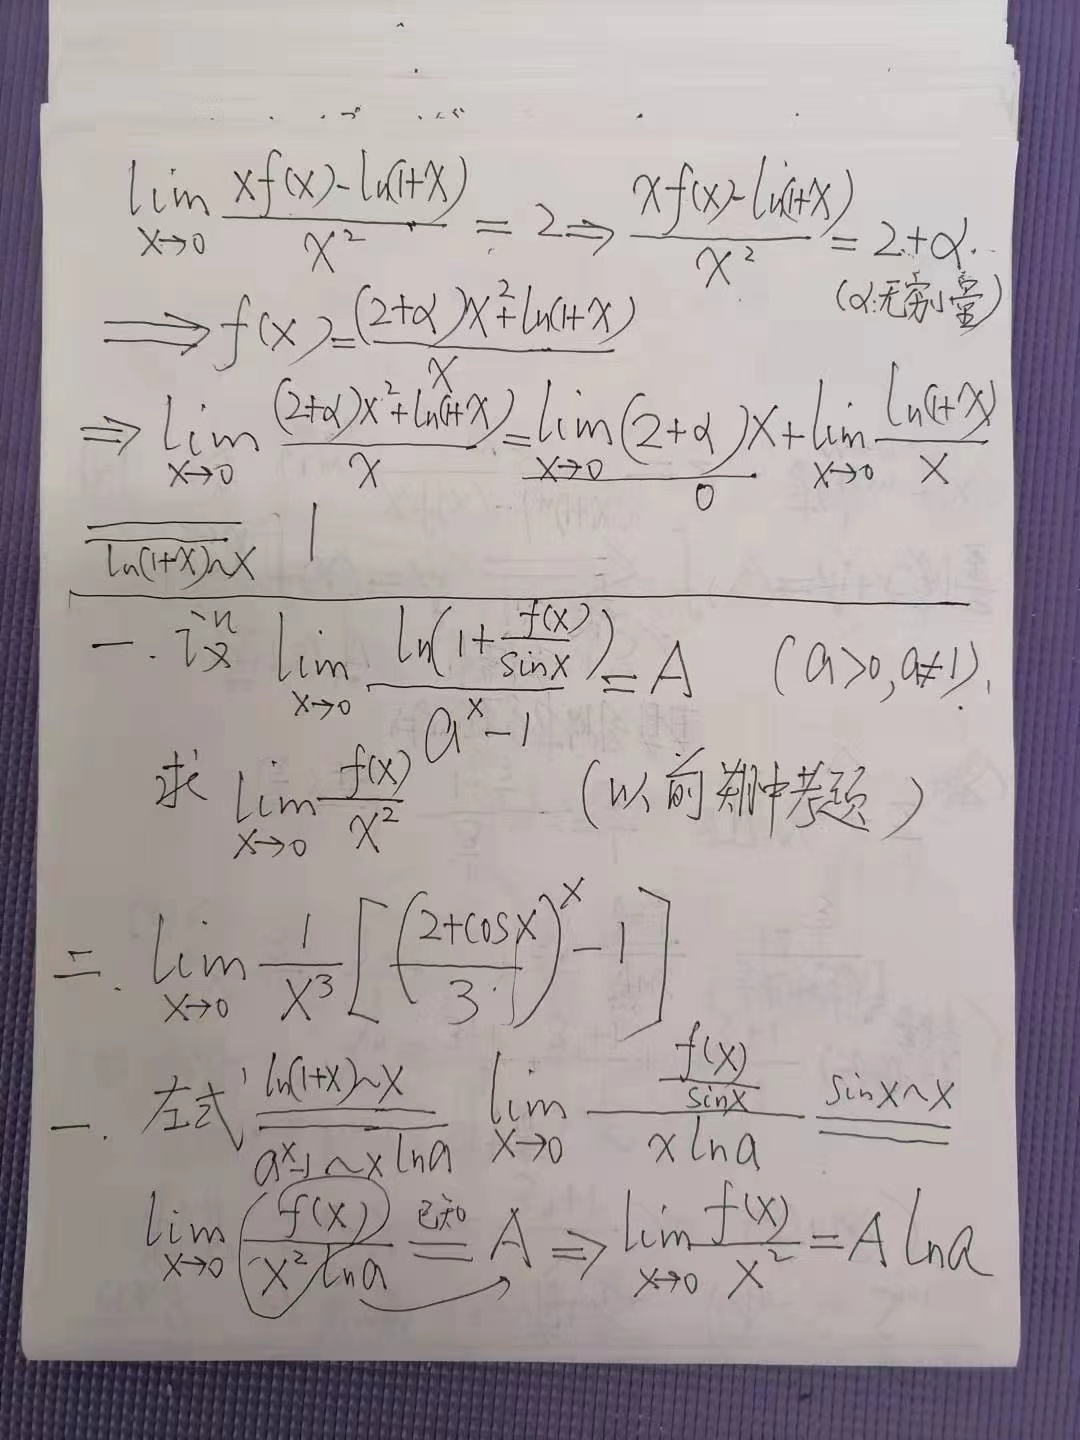 lim x→0 (xf(x)-ln(1+x))/x² = 2 ⇒ (xf(x)-ln(1+x))/x² = 2+α.
(α:无穷小量)
⟹ f(x)=((2+α)x²+ln(1+x))/x
⇒ lim x→0 ((2+α)x²+ln(1+x))/x = lim x→0 (2+α)x + lim x→0 ln(1+x)/x
0
ln(1+x)~x 1
一. 设 lim x→0 ln(1+f(x)/sinx)/(aˣ-1) = A (a>0,a≠1).
求 lim x→0 f(x)/x² (以前期中考题)
二. lim x→0 1/x³ [((2+cosx)/3)ˣ-1]
一. 左式 ln(1+x)~x aˣ-1~xlna lim x→0 (f(x)/sinx)/(xlna) sinx~x
lim x→0 f(x)/(x²lna) 已知= A ⇒ lim x→0 f(x)/x² = Alna